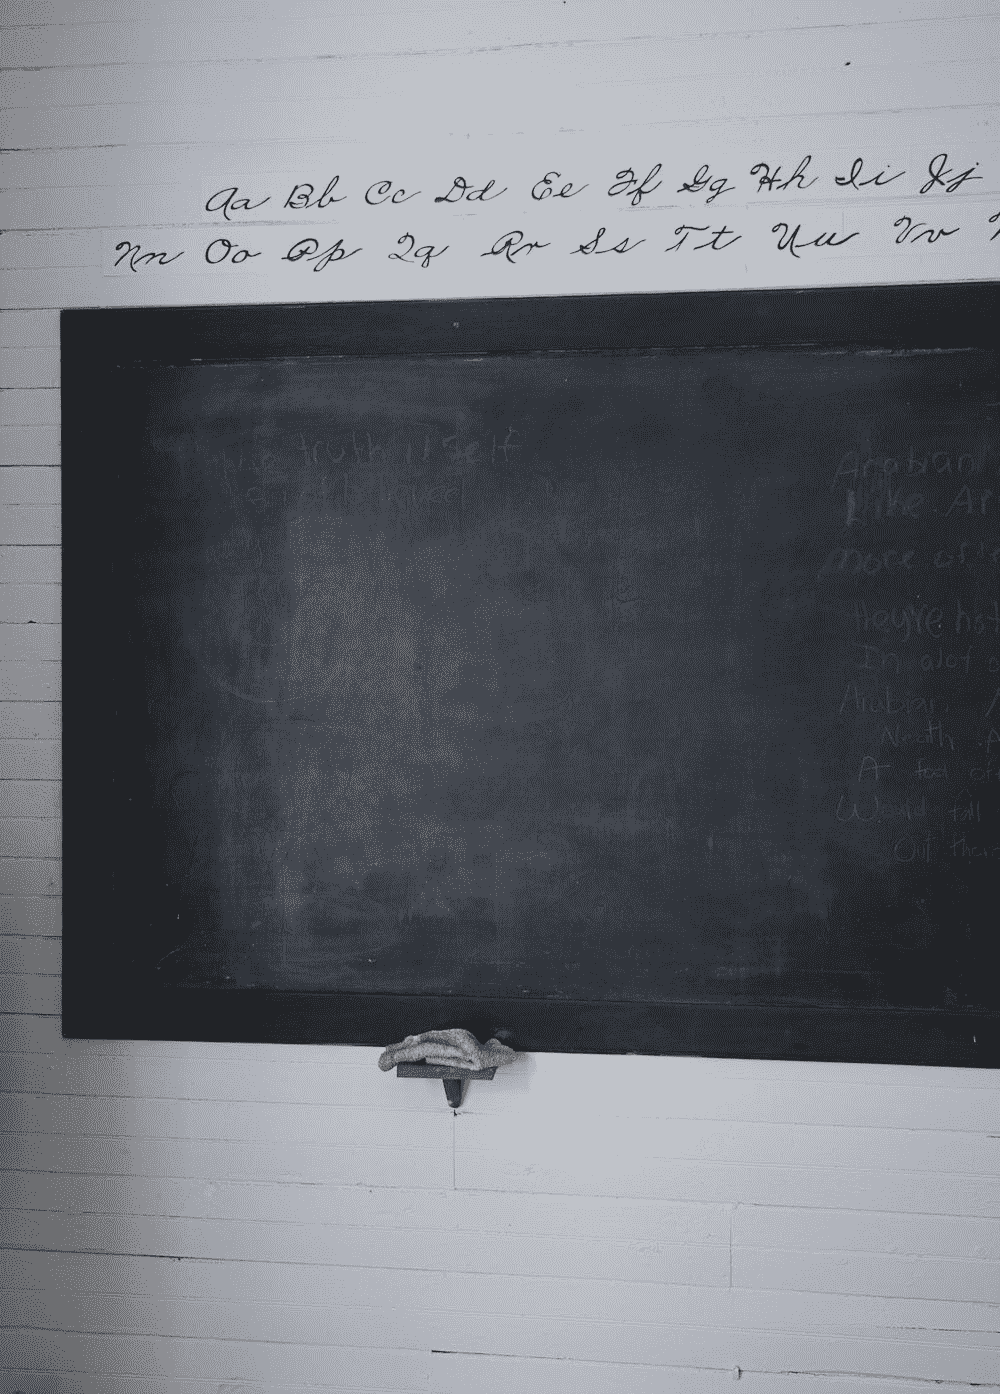 Aa Bb Cc Dd Ee Ff Gg Hh Ii Jj
Nn Oo Pp Qq Rr Ss Tt Uu Vv
truth itself
Arabian
Like Ar
more of
They're hot
In alot
Arabian
Neath A
A fool off
Would fall
Out ther